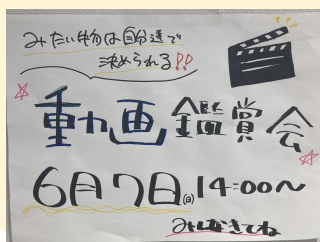 みたい物は自分達で
決められる!!
動画鑑賞会
6月7日(日)14:00〜
みにきてね